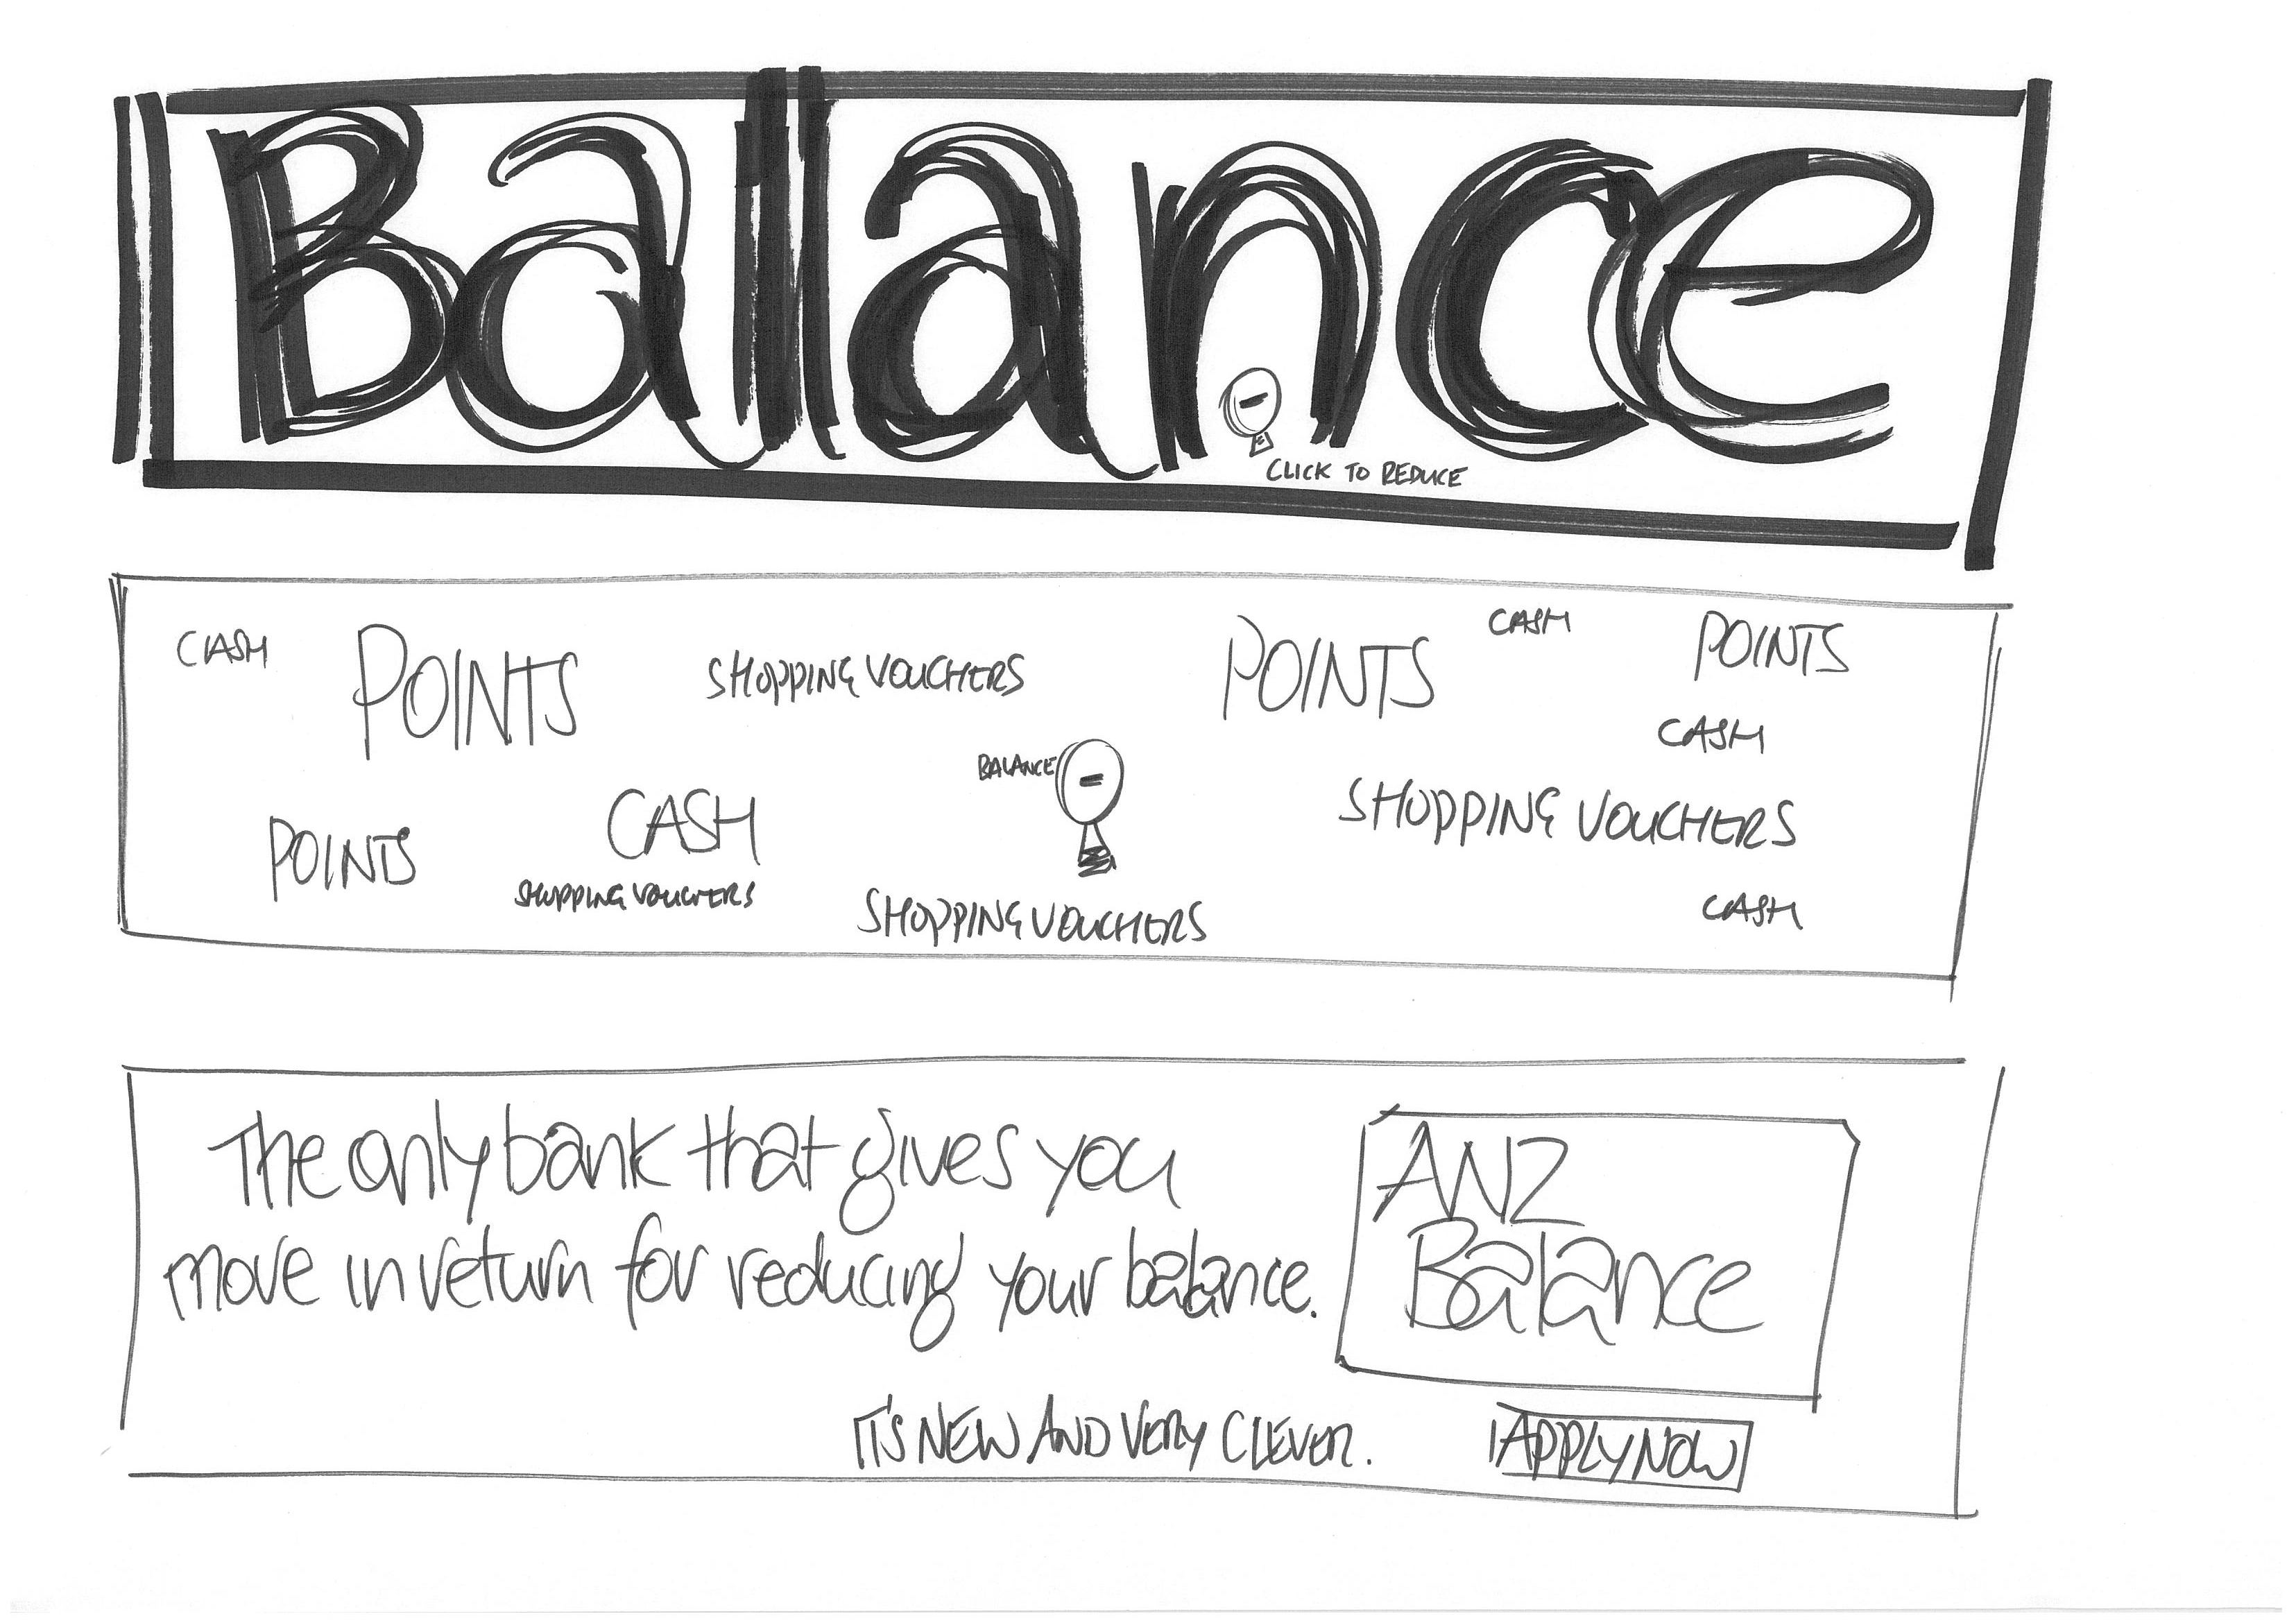 Balance
CLICK TO REDUCE
CASH POINTS SHOPPING VOUCHERS POINTS CASH POINTS
CASH
BALANCE
POINTS CASH SHOPPING VOUCHERS
SHOPPING VOUCHERS SHOPPING VOUCHERS CASH
The only bank that gives you
move in return for reducing your balance.
ANZ
Balance
IT'S NEW AND VERY CLEVER.
APPLY NOW